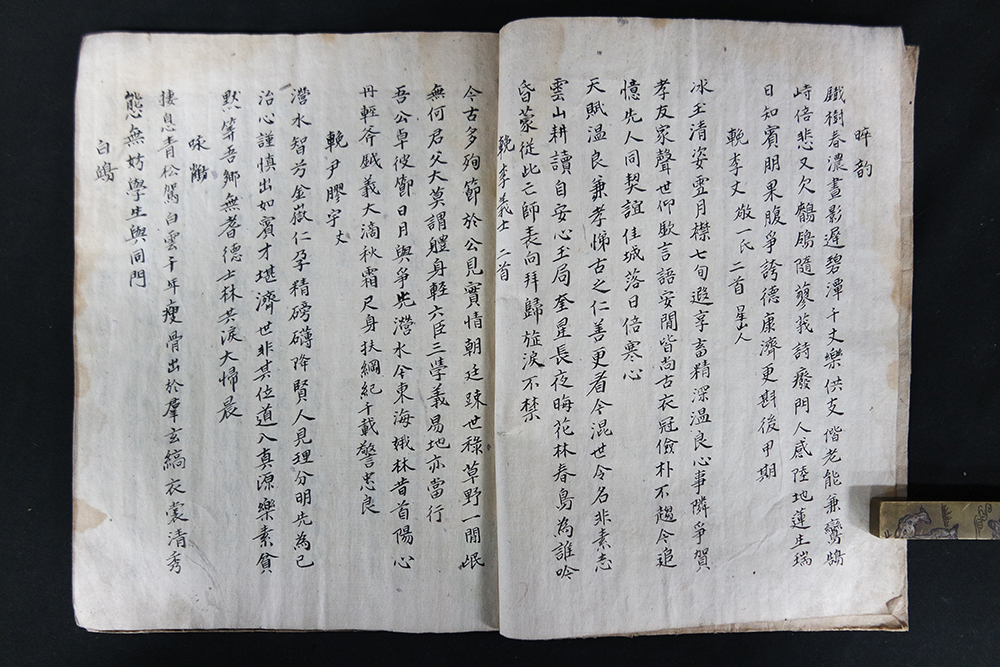 晬韵
鐵樹春濃晝影遲碧潭千丈樂供支偕老能兼鸞鵠
峙倍悲又欠鶺鴒隨蓼莪詩癈門人感陸地蓮生瑞
日知賓朋果腹爭誇德康濟更斟後甲期
輓李丈敬一氏 二首 星山人
冰玉清姿雪月襟七旬遐享畜精深溫良心事隣爭賀
孝友家聲世仰歆言語安閒皆尚古衣冠儉朴不趨今追
憶先人同契誼佳城落日倍寒心
天賦溫良兼孝悌古之仁善更看今混世令名非素志
雲山耕讀自安心玉局奎星長夜晦花林春鳥為誰吟
昏蒙從此亡師表向拜歸旋淚不禁
輓李義士 二首
今古多殉節於公見實情朝廷踈世祿草野一閒氓
無何君父大莫謂軆身輕六臣三學義易地亦當行
吾公卓彼節日月與爭光瀯水今東海娥林昔首陽心
丹輕斧鉞義大滴秋霜尺身扶綱紀千載警忠良
輓尹膠宇丈
瀯水智芳金嶽仁孕精磅礴降賢人見理分明先為己
治心謹慎出如賓才堪濟世非其位道入真源樂素貧
黙筭吾鄉無耆德士林共淚大歸晨
咏
捿息青松駕白雲千年瘦骨出於羣玄縞衣裳清秀
態無妨學生與同門
白鷗